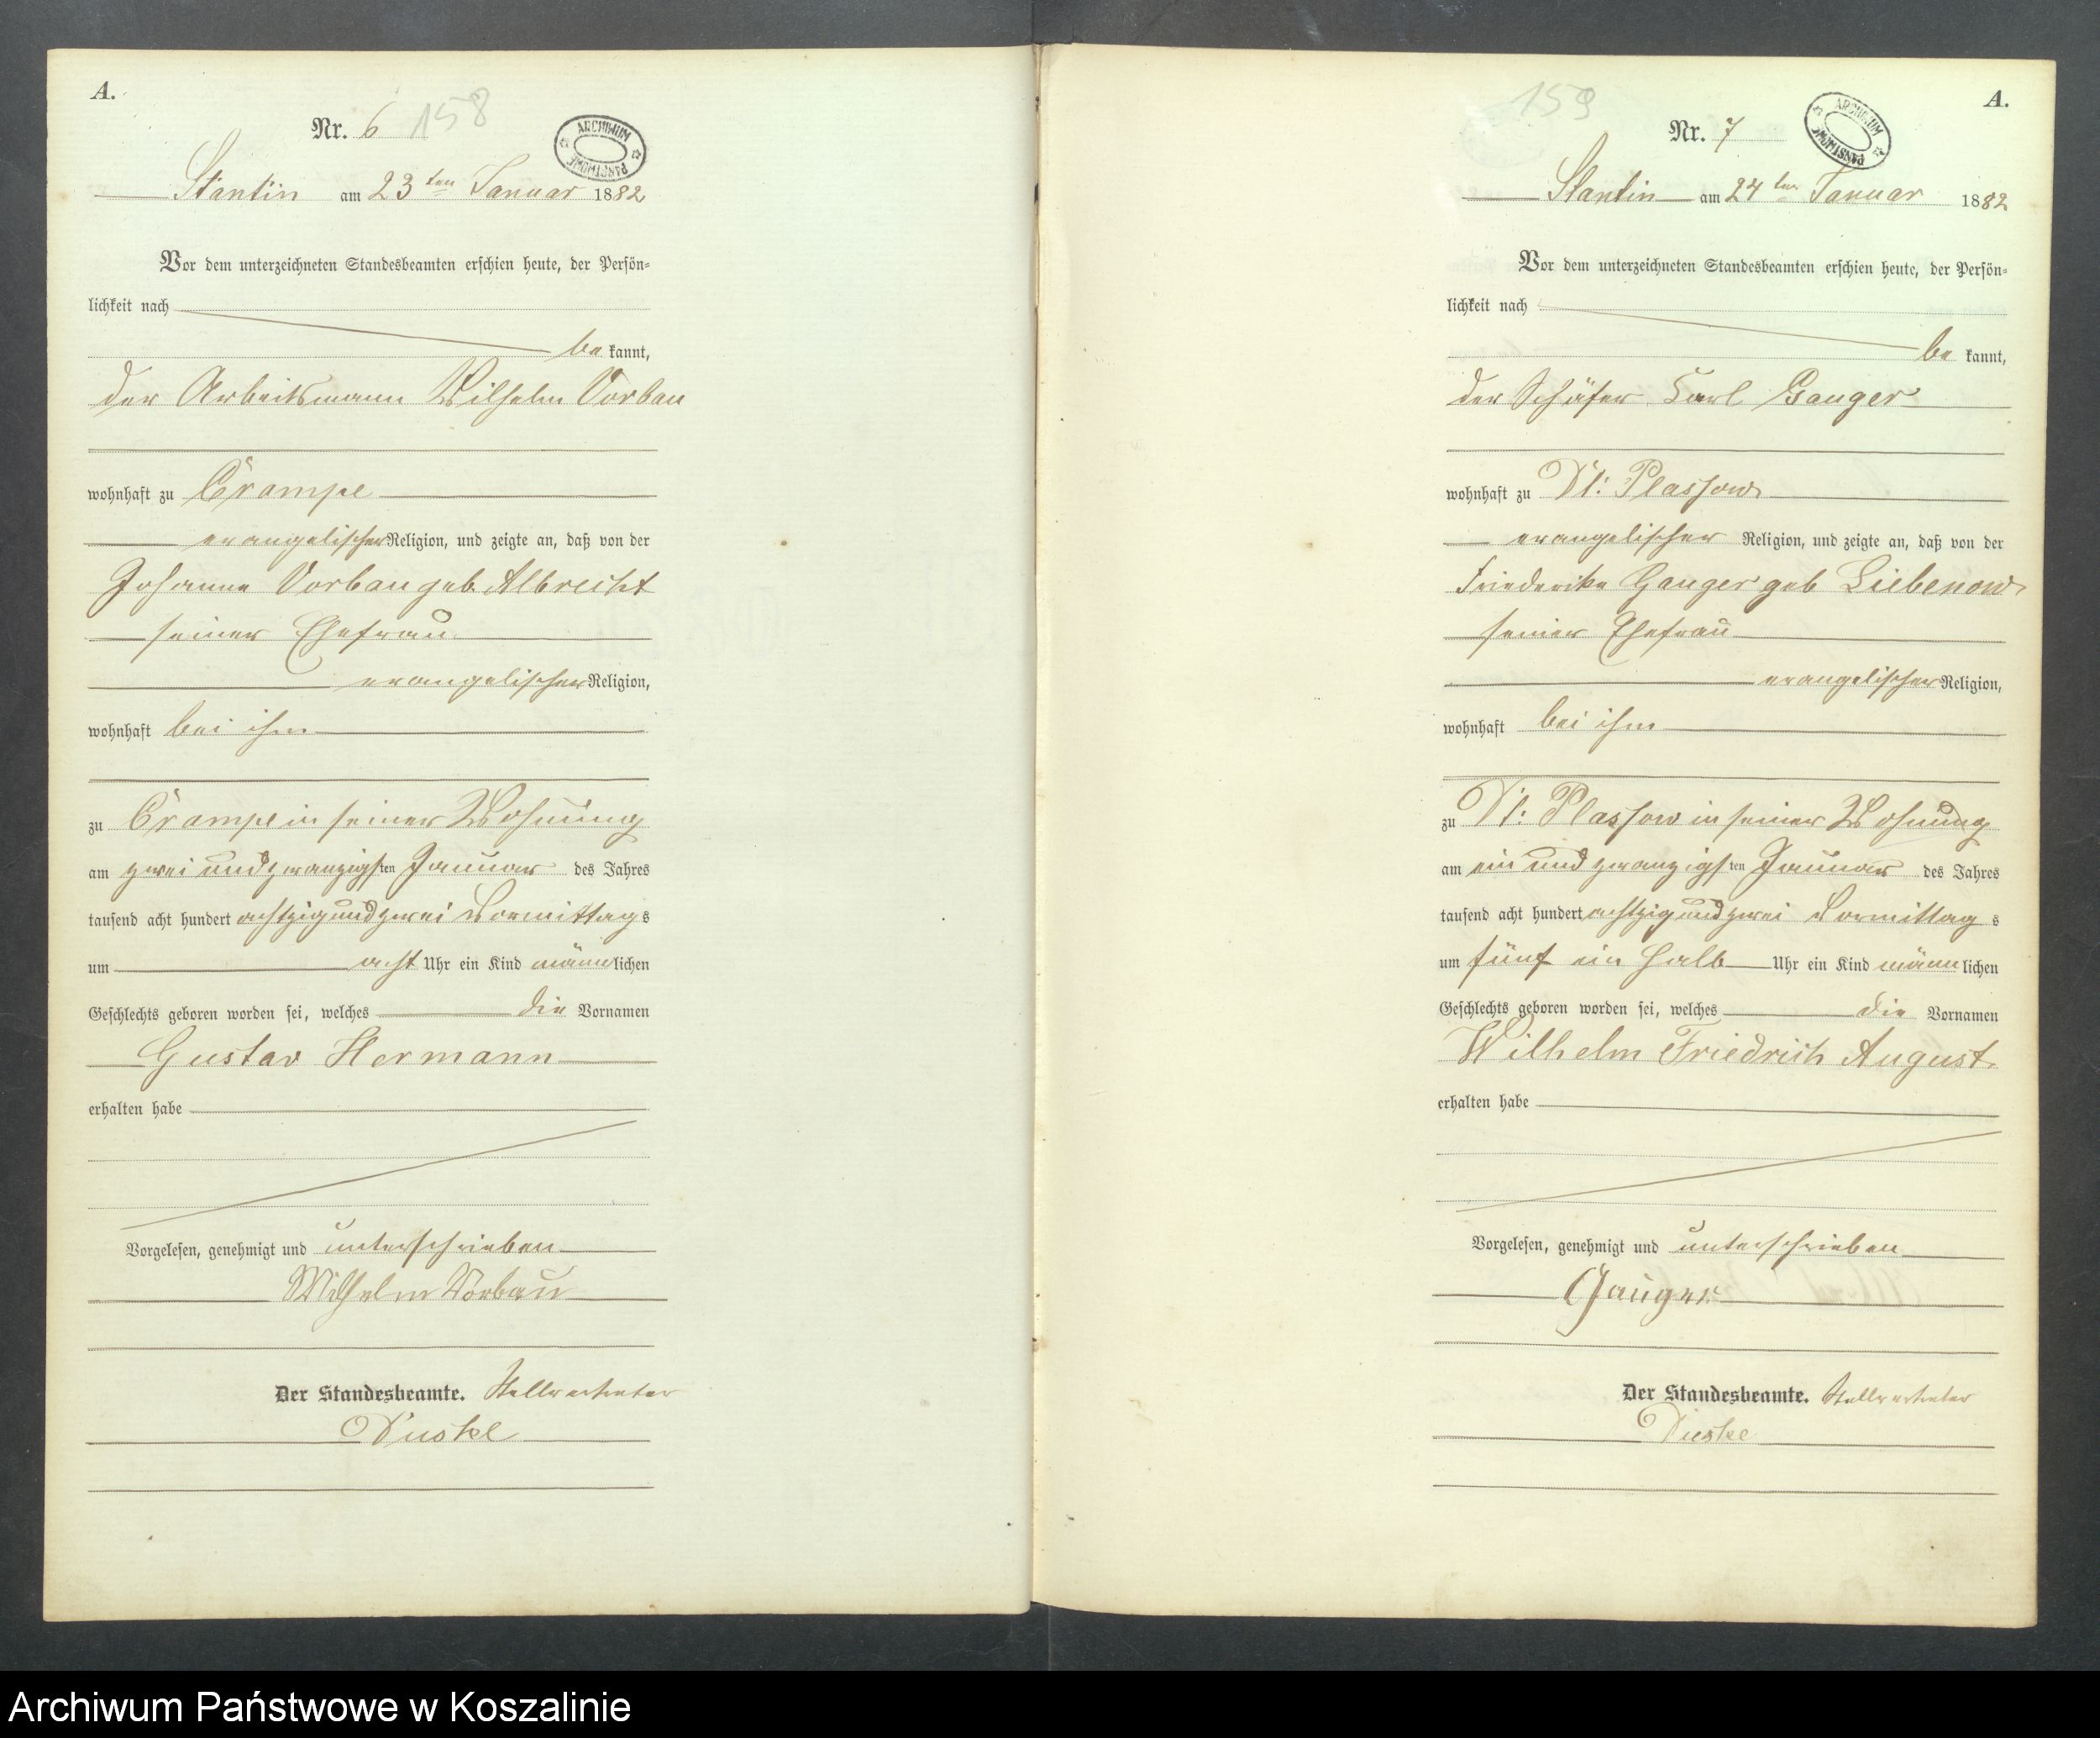 A.
Nr. 6 158
ARCHIWUM PAŃSTWOWE
Stantin am 23ten Januar 1882
Vor dem unterzeichneten Standesbeamten erschien heute, der Persön=
lichkeit nach
be kannt,
der Arbeitsmann Wilhelm Vorbau
wohnhaft zu Crampe
evangelischer Religion, und zeigte an, daß von der
Johanna Vorbau geb. Albrecht
seiner Ehefrau
evangelischer Religion,
wohnhaft bei ihm
zu Crampe in seiner Wohnung
am zwei und zwanzigsten Januar des Jahres
tausend acht hundert achtzig und zwei Vormittags
um acht Uhr ein Kind männlichen
Geschlechts geboren worden sei, welches die Vornamen
Gustav Hermann
erhalten habe
Vorgelesen, genehmigt und unterschrieben
Wilhelm Vorbau
Der Standesbeamte. Stellvertreter
A.
159
Nr. 7
ARCHIWUM PAŃSTWOWE
Stantin am 24ten Januar 1882
Vor dem unterzeichneten Standesbeamten erschien heute, der Persön=
lichkeit nach
be kannt,
der Schäfer Karl Gauger
wohnhaft zu Dt: Plassow
evangelischer Religion, und zeigte an, daß von der
Friederike Gauger geb Liebenow
seiner Ehefrau
evangelischer Religion,
wohnhaft bei ihm
zu Dt: Plassow in seiner Wohnung
am ein und zwanzigsten Januar des Jahres
tausend acht hundert achtzig und zwei Vormittags
um fünf ein halb Uhr ein Kind männlichen
Geschlechts geboren worden sei, welches die Vornamen
Wilhelm Friedrich August
erhalten habe
Vorgelesen, genehmigt und unterschrieben
Gauger
Der Standesbeamte. Stellvertreter
Archiwum Państwowe w Koszalinie